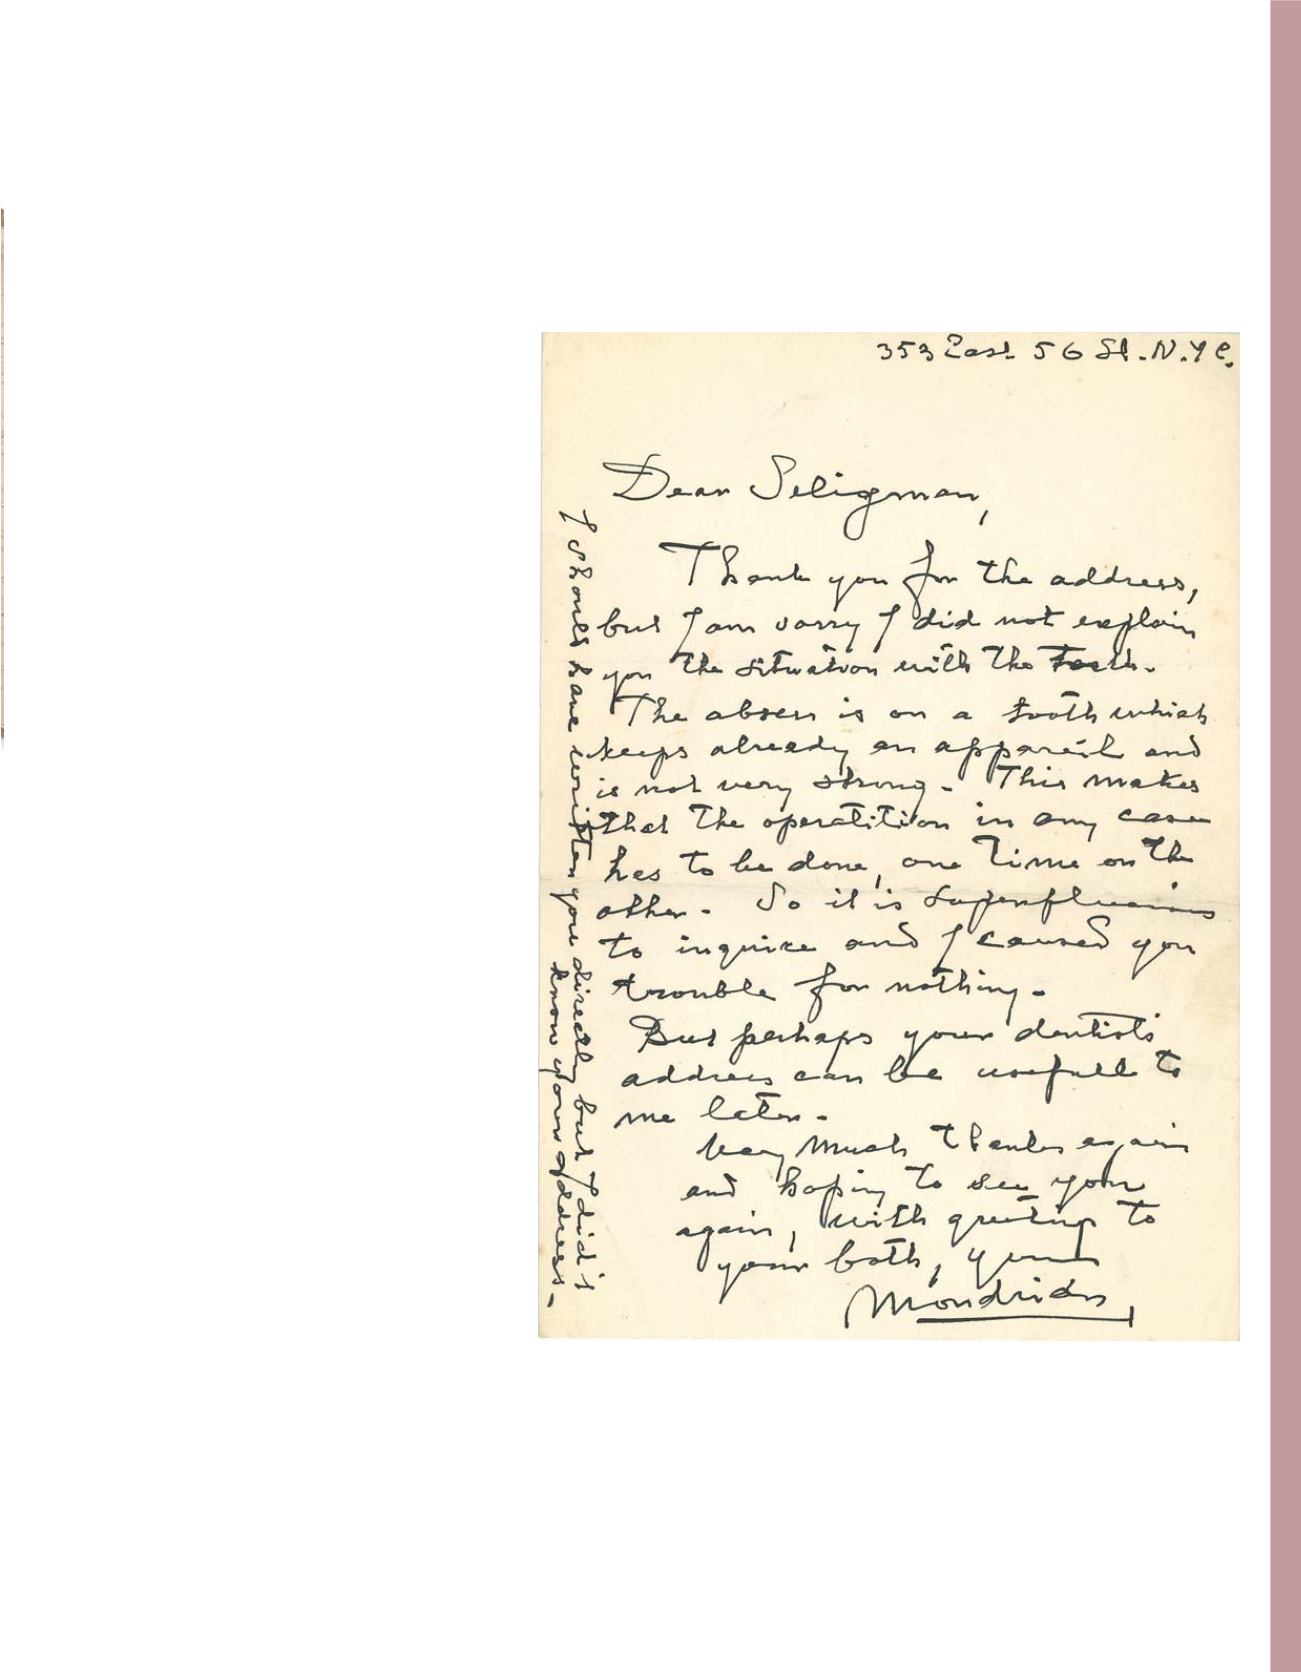 353 East 56 St. N.Y C.
Dear Seligman,
Thank you for the address,
but I am sorry I did not explain
you the situation with the teeth.
The abses is on a tooth which
keeps already an appareil and
is not very strong. This makes
that the operatition in any case
has to be done, one time on the
other. So it is superfluous
to inquire and I caused you
trouble for nothing.
But perhaps your dentists
address can be usefull to
me later.
Very much thanks again
and hoping to see you
again, with greetings to
your both, yours
Mondrian,
I should have written you directly but I did't
know your address.